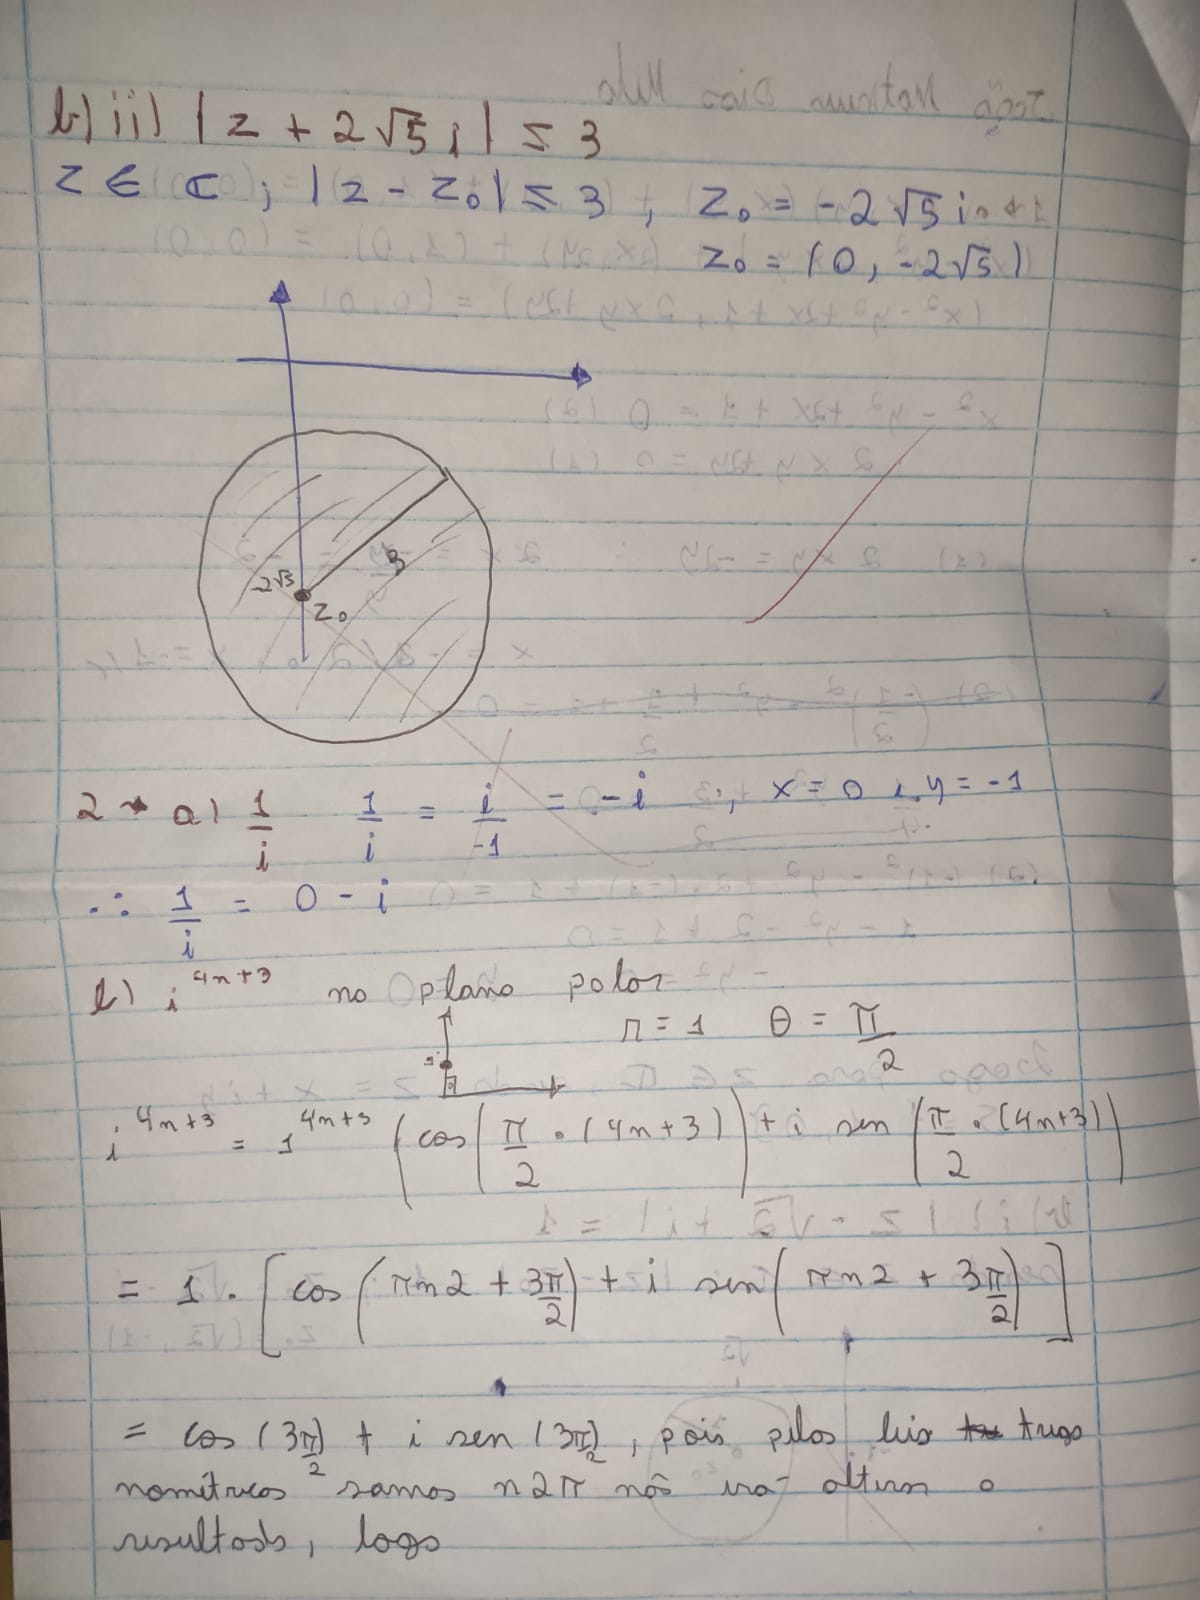 b) ii) |z + 2√5 i| ≤ 3
z ∈ ℂ ; |z - z₀| ≤ 3 , z₀ = -2√5 i
z₀ = (0, -2√5)
3
-2√5
z₀
2 → a) 1/i 1/i = i/-1 = -i ∴ x = 0 e y = -1
∴ 1/i = 0 - i
b) i^(4n+3) no plano polar
r = 1 θ = π/2
i^(4n+3) = 1^(4n+3) (cos(π/2 . (4n+3)) + i sen(π/2 . (4n+3))
= 1 . [cos(πn2 + 3π/2) + i sen(πn2 + 3π/2)]
= cos(3π/2) + i sen(3π/2), pois pelas leis trigo
nométricas somas n2π não irá alterar o
resultado, logo